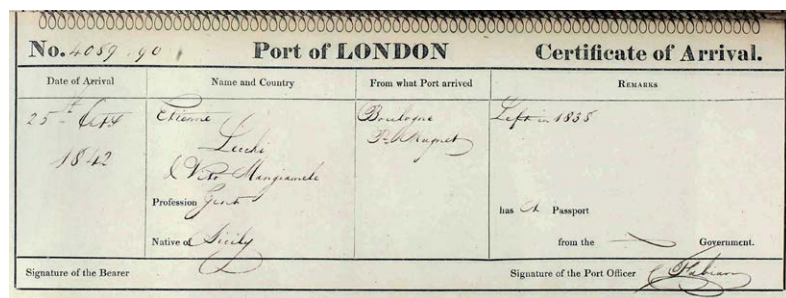 No. 4089.90 Port of LONDON Certificate of Arrival.
Date of Arrival Name and Country From what Port arrived REMARKS
25th 1842
Etienne
Lecchi
& Vito Mangiamele
Boulogne
Pr Magnet
Left in 1838
Profession Gent
Native of Sicily
has Passport
from the Government.
Signature of the Bearer
Signature of the Port Officer Fabian